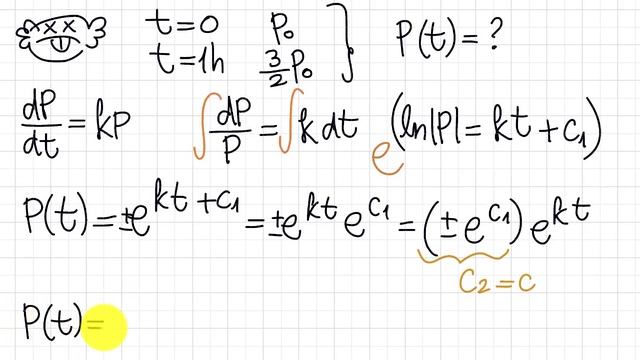 t=0 P₀
t=1h 3/2 P₀
P(t)=?
dP/dt = kP
∫dP/P = ∫k dt
e^(ln|P| = kt + C₁)
P(t) = ±e^(kt + C₁) = ±e^(kt) e^(C₁) = (±e^(C₁)) e^(kt)
C₂ = C
P(t) =